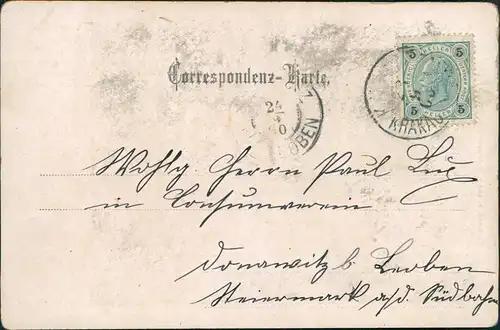 Correspondenz-Karte.
5 5
5 5
KRAKAU
24
LEOBEN
Wohlg. Herrn Paul Lux
in Consumverein
Donawitz b. Leoben
Steiermark a/d. Südbahn